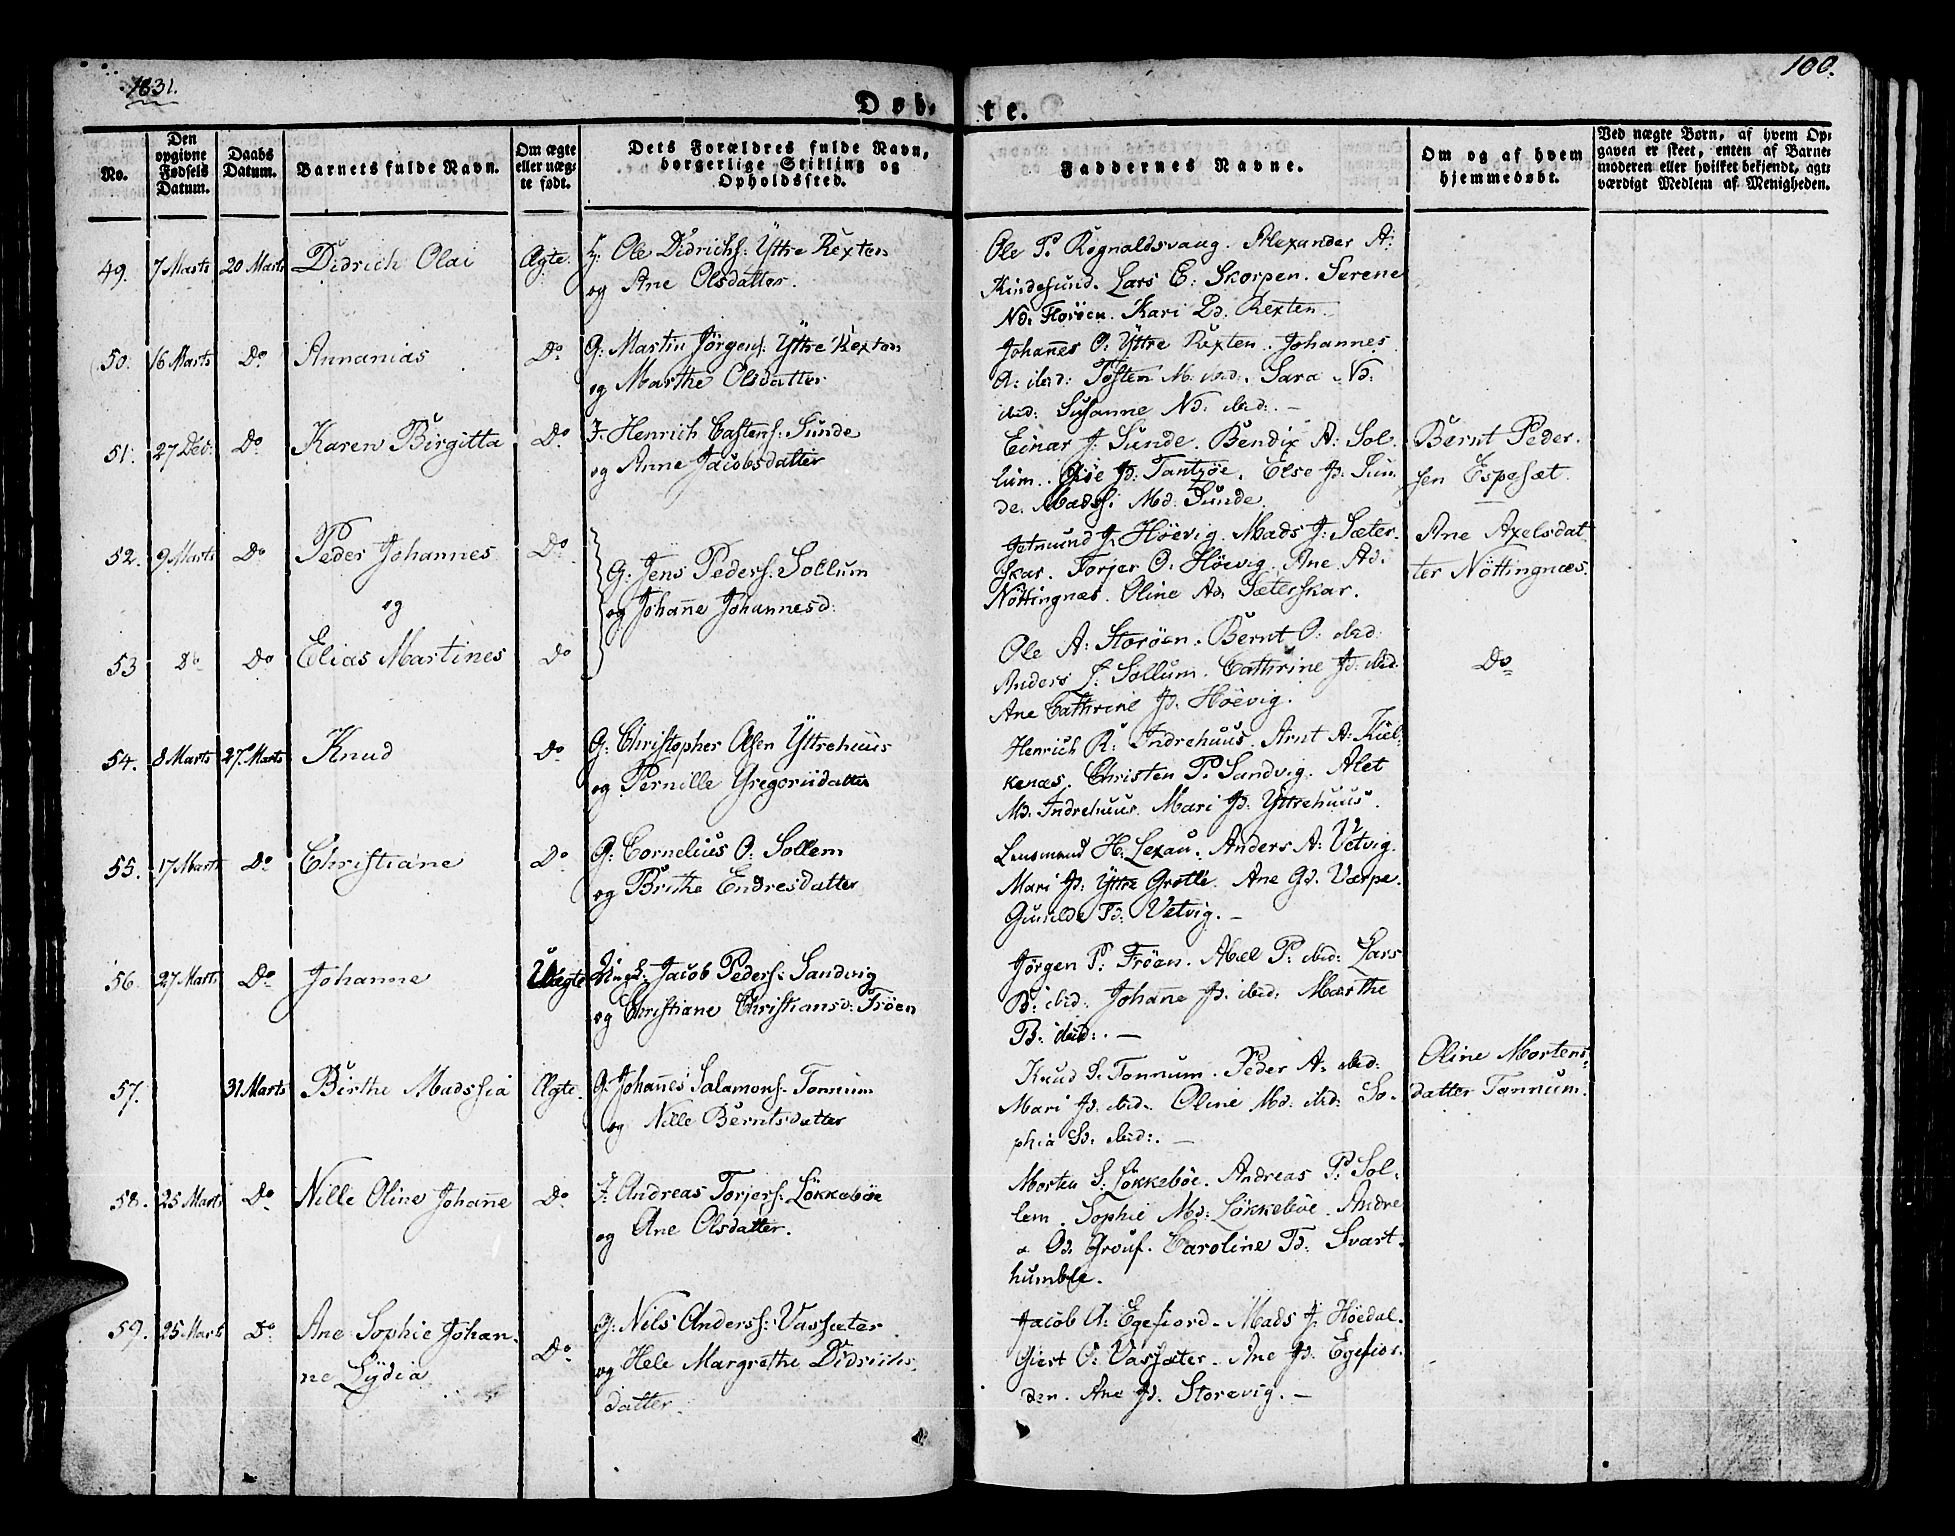 1831.
100.
Døb-
te.
No.
Den opgivne Fødsels Datum.
Daabs Datum.
Barnets fulde Navn.
Om ægte eller uægte født.
Dets Forældres fulde Navn, borgerlige Stilling og Opholdssted.
Faddernes Navne.
Om og af hvem hjemmedøbt.
Ved uægte Børn, af hvem Opgaven er skeet, enten af Barnemoderen eller hvilket bekjendt, agtværdigt Medlem af Menigheden.
49. 7 Marts 20 Marts Didrich Olai Ægte. Ole Didrichs: Yttre Rexten
og Ane Olsdatter.
Ole P. Rognaldsvaag. Alexander A:
Kindesund. Lars E: Skorpen. Serene
Nd: Florøen. Kari Ld. Rexten.
50. 16 Marts Do Annanias Do G: Martin Jörgens: Yttre Rexten
og Marthe Olsdatter
Johañes O. Yttre Rexten. Johannes
A: ibid: Tosten M: ibid. Sara Nd:
ibid: Susanne Nd. ibid. —
51. 27 Deb: Do Karen Birgitta Do J. Henrich Castens: Sunde
og Anne Jacobsdatter
Einar J. Sunde. Bendix A: Sol-
lum. Jd: Tantzøe. Else Jd: Sun-
de. Madss: Md: Sunde
Bernt Peder-
sen Espeset.
52. 9 Marts Do Peder Johannes Do
og
G: Jens Peders: Sollum
og Johañe Johannesd:
Jetmund J. Höevig. Mads J: Sæter-
skar. Torjer O. Höevig. Ane Ad:
Nöttingnæs. Oline Ad. Sæterskar.
Ane Axelsdat-
ter Nöttingnæs.
53 Do Do Elias Martines Do
Ole A: Storøen. Bernt O: ibid:
Anders J: Sollum. Cathrine Jd: ibid.
Ane Cathrine Jd. Höevig.
Do
54. 8 Marts 27 Marts Knud Do G: Christopher Olsen Yttrehuus
og Pernille Gregoriidatter
Henrich R: Indrehuus. Arnt A: Kiel-
kenæs. Christen P. Sandvig. Alet
Md. Indrehuus. Mari Jd. Yttrehuus.
55. 17 Marts Do Christiane Do G: Cornelius O: Sollem
og Brithe Endresdatter
Lensmand H: Lexau. Anders A: Vetvig.
Mari Jd. Yttre Grotle. Ane Gd. Værpe.
Gunilde Td: Vetvig. —
56. 27 Marts Do Johanne Uægte Ungk: Jacob Peders: Sandvig
og Christiane Christiansd: Fröen
Jörgen P: Fröen. Abel P: ibid: Lars
P: ibid. Johañe Jd. ibid: Marthe
B: ibid:. —
57. 31 Marts Birthe Madssia Ægte. G: Johañes Salamons: Tonnum
og Nille Berntsdatter
Knud S. Tonnum. Peder A: ibid:
Mari Jd. ibid. Oline Md. ibid: So-
phia Sd: ibid:. —
Oline Mortens-
datter Tonnum.
58. 25 Marts Do Nille Oline Johañe Do J: Andreas Torjers: Lökkebøe
og Ane Olsdatter.
Morten S: Lökkebøe. Andreas P: Sol-
lem. Sophie Md: Lökkebøe. Andre
a Od. Grouf. Caroline Td: Svart-
humble.
59. 25 Marts Do Ane Sophie Johan-
ne Lydia
Do G: Nils Anders: Vassæter
og Hele Margrethe Didrichs-
datter.
Jacob A: Egefiord. Mads J. Höedal.
Giert O: Vassæter. Ane Jd. Egefior-
den. Ane Jd. Storevig. —